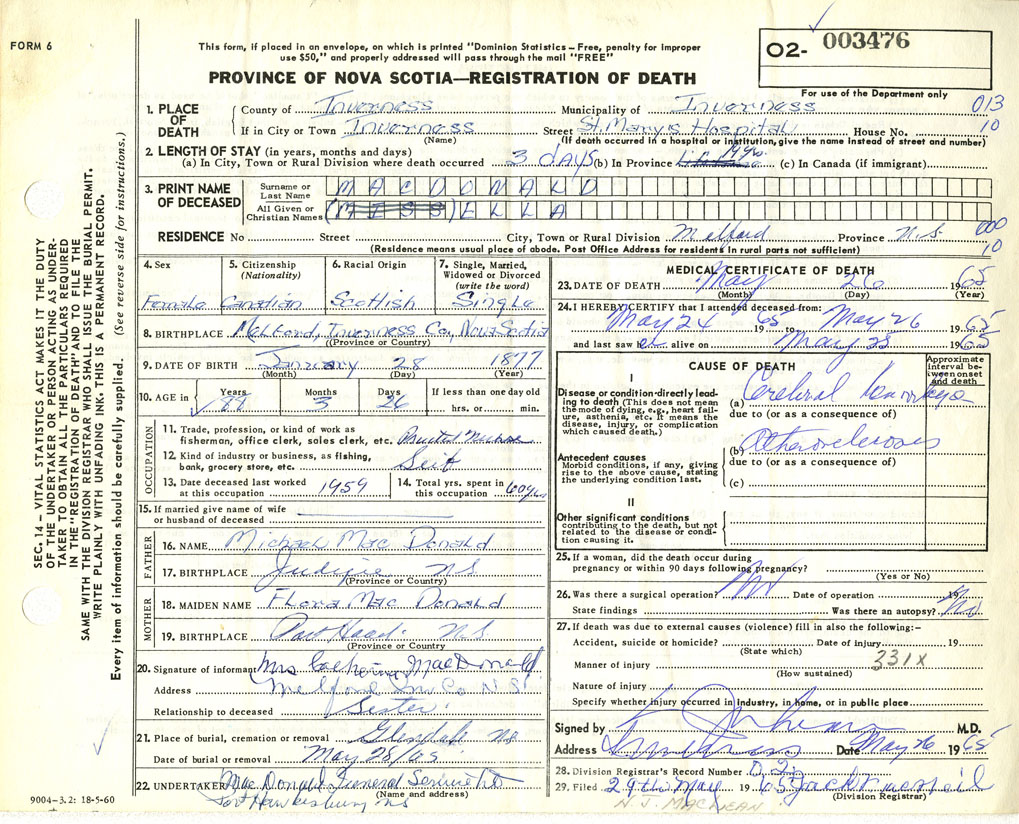 FORM 6
This form, if placed in an envelope, on which is printed "Dominion Statistics – Free, penalty for improper
use $50," and properly addressed will pass through the mail "FREE"
02- 003476
For use of the Department only
PROVINCE OF NOVA SCOTIA—REGISTRATION OF DEATH
013
10
1. PLACE OF DEATH
County of Inverness Municipality of Inverness
If in City or Town Inverness Street St. Mary's Hospital House No.
(Name) (If death occurred in a hospital or institution, give the name instead of street and number)
2. LENGTH OF STAY (in years, months and days)
(a) In City, Town or Rural Division where death occurred 3 days (b) In Province (c) In Canada (if immigrant)
3. PRINT NAME OF DECEASED
Surname or Last Name MACDONALD
All Given or Christian Names (MISS) ELLA
000
10
RESIDENCE No Street City, Town or Rural Division Melford Province N.S.
(Residence means usual place of abode. Post Office Address for residents in rural parts not sufficient)
4. Sex
Female
5. Citizenship (Nationality)
Canadian
6. Racial Origin
Scottish
7. Single, Married, Widowed or Divorced (write the word)
Single
8. BIRTHPLACE Inverness Co., Nova Scotia
(Province or Country)
9. DATE OF BIRTH January 28 1877
(Month) (Day) (Year)
10. AGE in Years 88 Months 3 Days 26 If less than one day old
hrs. or min.
OCCUPATION
11. Trade, profession, or kind of work as
fisherman, office clerk, sales clerk, etc.
12. Kind of industry or business, as fishing,
bank, grocery store, etc.
13. Date deceased last worked
at this occupation 1959
14. Total yrs. spent in
this occupation 60 yrs
15. If married give name of wife
or husband of deceased
FATHER
16. NAME Michael Mac Donald
17. BIRTHPLACE Judique N S
(Province or Country)
MOTHER
18. MAIDEN NAME Flora Mac Donald
19. BIRTHPLACE Port Hood N.S
(Province or Country)
20. Signature of informant Mrs MacDonald
Address Melford Inv Co N S
Relationship to deceased Sister
21. Place of burial, cremation or removal N.S.
Date of burial or removal May 28/65
22. UNDERTAKER MacDonald Funeral Service
(Name and address)
Port Hawkesbury NS
9004-3.2: 18-5-60
MEDICAL CERTIFICATE OF DEATH
23. DATE OF DEATH May 26 1965
(Month) (Day) (Year)
24. I HEREBY CERTIFY that I attended deceased from:
May 24 1965 to May 26 1965
and last saw alive on May 25 1965
CAUSE OF DEATH
Approximate interval between onset and death
I
Disease or condition directly leading to death (This does not mean the mode of dying, e.g., heart failure, asthenia, etc. It means the disease, injury, or complication which caused death.)
(a) Cerebral
due to (or as a consequence of)
Antecedent causes
Morbid conditions, if any, giving rise to the above cause, stating the underlying condition last.
(b) Atherosclerosis
due to (or as a consequence of)
(c)
II
Other significant conditions
contributing to the death, but not related to the disease or condition causing it.
25. If a woman, did the death occur during
pregnancy or within 90 days following pregnancy?
(Yes or No)
26. Was there a surgical operation? No Date of operation 19
State findings Was there an autopsy? No
27. If death was due to external causes (violence) fill in also the following:-
Accident, suicide or homicide? Date of injury 19
(State which)
331X
Manner of injury
(How sustained)
Nature of injury
Specify whether injury occurred in industry, in home, or in public place
Signed by M.D.
Address Inverness Date May 26 1965
28. Division Registrar's Record Number
29. Filed 29th May 1965
(Division Registrar)
N. J. MACLEAN
SEC. 14 – VITAL STATISTICS ACT MAKES IT THE DUTY
OF THE UNDERTAKER OR PERSON ACTING AS UNDER-
TAKER TO OBTAIN ALL THE PARTICULARS REQUIRED
IN THE "REGISTRATION OF DEATH" AND TO FILE THE
SAME WITH THE DIVISION REGISTRAR WHO SHALL ISSUE THE BURIAL PERMIT.
WRITE PLAINLY WITH UNFADING INK. THIS IS A PERMANENT RECORD.
Every item of information should be carefully supplied. (See reverse side for instructions.)